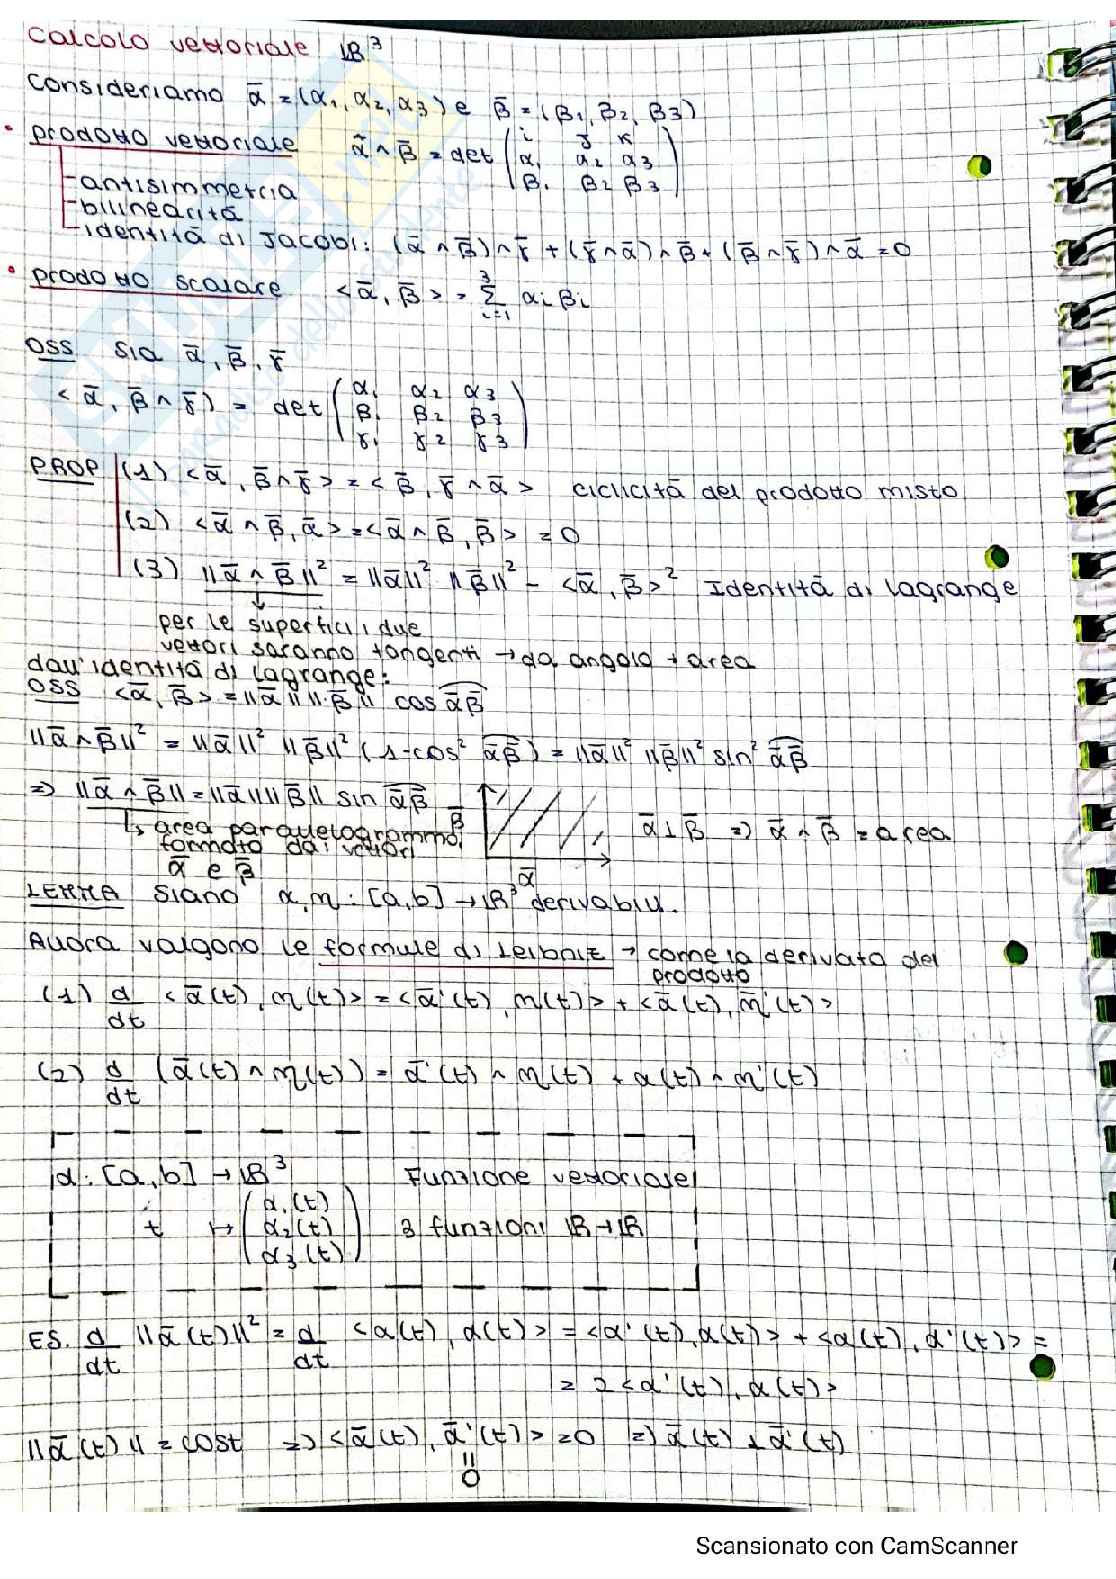 Calcolo vettoriale ℝ³
Consideriamo ᾱ = (α₁, α₂, α₃) e β̄ = (β₁, β₂, β₃)
• prodotto vettoriale ᾱ ∧ β̄ = det ( i j k
α₁ α₂ α₃
β₁ β₂ β₃ )
- antisimmetria
- bilinearità
- identità di Jacobi: (ᾱ ∧ β̄) ∧ γ̄ + (γ̄ ∧ ᾱ) ∧ β̄ + (β̄ ∧ γ̄) ∧ ᾱ = 0
• prodotto scalare <ᾱ, β̄> = Σ³ᵢ₌₁ αᵢ βᵢ
OSS Sia ᾱ, β̄, γ̄
<ᾱ, β̄ ∧ γ̄) = det ( α₁ α₂ α₃
β₁ β₂ β₃
γ₁ γ₂ γ₃ )
PROP (1) <ᾱ, β̄ ∧ γ̄> = <β̄, γ̄ ∧ ᾱ> ciclicità del prodotto misto
(2) <ᾱ ∧ β̄, ᾱ> = <ᾱ ∧ β̄, β̄> = 0
(3) ||ᾱ ∧ β̄||² = ||ᾱ||² ||β̄||² - <ᾱ, β̄>² Identità di Lagrange
↓
per le superfici, due
vettori saranno tangenti → da angolo + area
dall'identità di Lagrange:
OSS <ᾱ, β̄> = ||ᾱ|| ||β̄|| cos ᾱβ̄
||ᾱ ∧ β̄||² = ||ᾱ||² ||β̄||² (1 - cos² ᾱβ̄) = ||ᾱ||² ||β̄||² sin² ᾱβ̄
=> ||ᾱ ∧ β̄|| = ||ᾱ|| ||β̄|| sin ᾱβ̄
↳ area parallelogrammo
formato dai vettori
ᾱ e β̄
β̄
ᾱ
ᾱ ⊥ β̄ => ᾱ ∧ β̄ = area
LEMMA Siano α, η : [a,b] → ℝ³ derivabili.
Allora valgono le formule di Leibniz → come la derivata del
prodotto
(1) d/dt <ᾱ(t), η(t)> = <ᾱ'(t), η(t)> + <ᾱ(t), η̄'(t)>
(2) d/dt (ᾱ(t) ∧ η(t)) = ᾱ'(t) ∧ η(t) + α(t) ∧ η'(t)
α : [a,b] → ℝ³ Funzione vettoriale
t ↦ ( α₁(t)
α₂(t)
α₃(t) ) 3 funzioni ℝ → ℝ
ES. d/dt ||ᾱ(t)||² = d/dt <α(t), α(t)> = <α'(t), α(t)> + <α(t), α'(t)> =
= 2 <α'(t), α(t)>
||ᾱ(t)|| = cost => <ᾱ(t), ᾱ'(t)> = 0 => ᾱ(t) ⊥ ᾱ'(t)
=
0
Scansionato con CamScanner